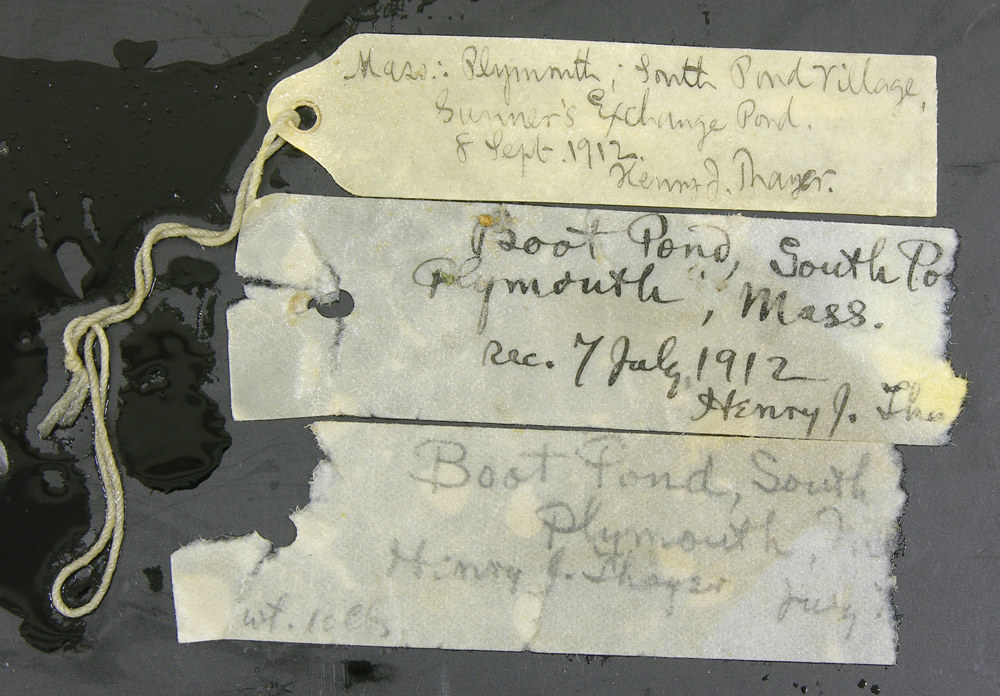 Mass.: Plymouth; South Pond Village,
Sumner's Exchange Pond.
8 Sept. 1912.
Henry J. Thayer.
Boot Pond, South Po
Plymouth, Mass.
rec. 7 July, 1912
Henry J. Tha
Boot Pond, South
Plymouth,
Henry J. Thayer July 7
wt. 10 lbs